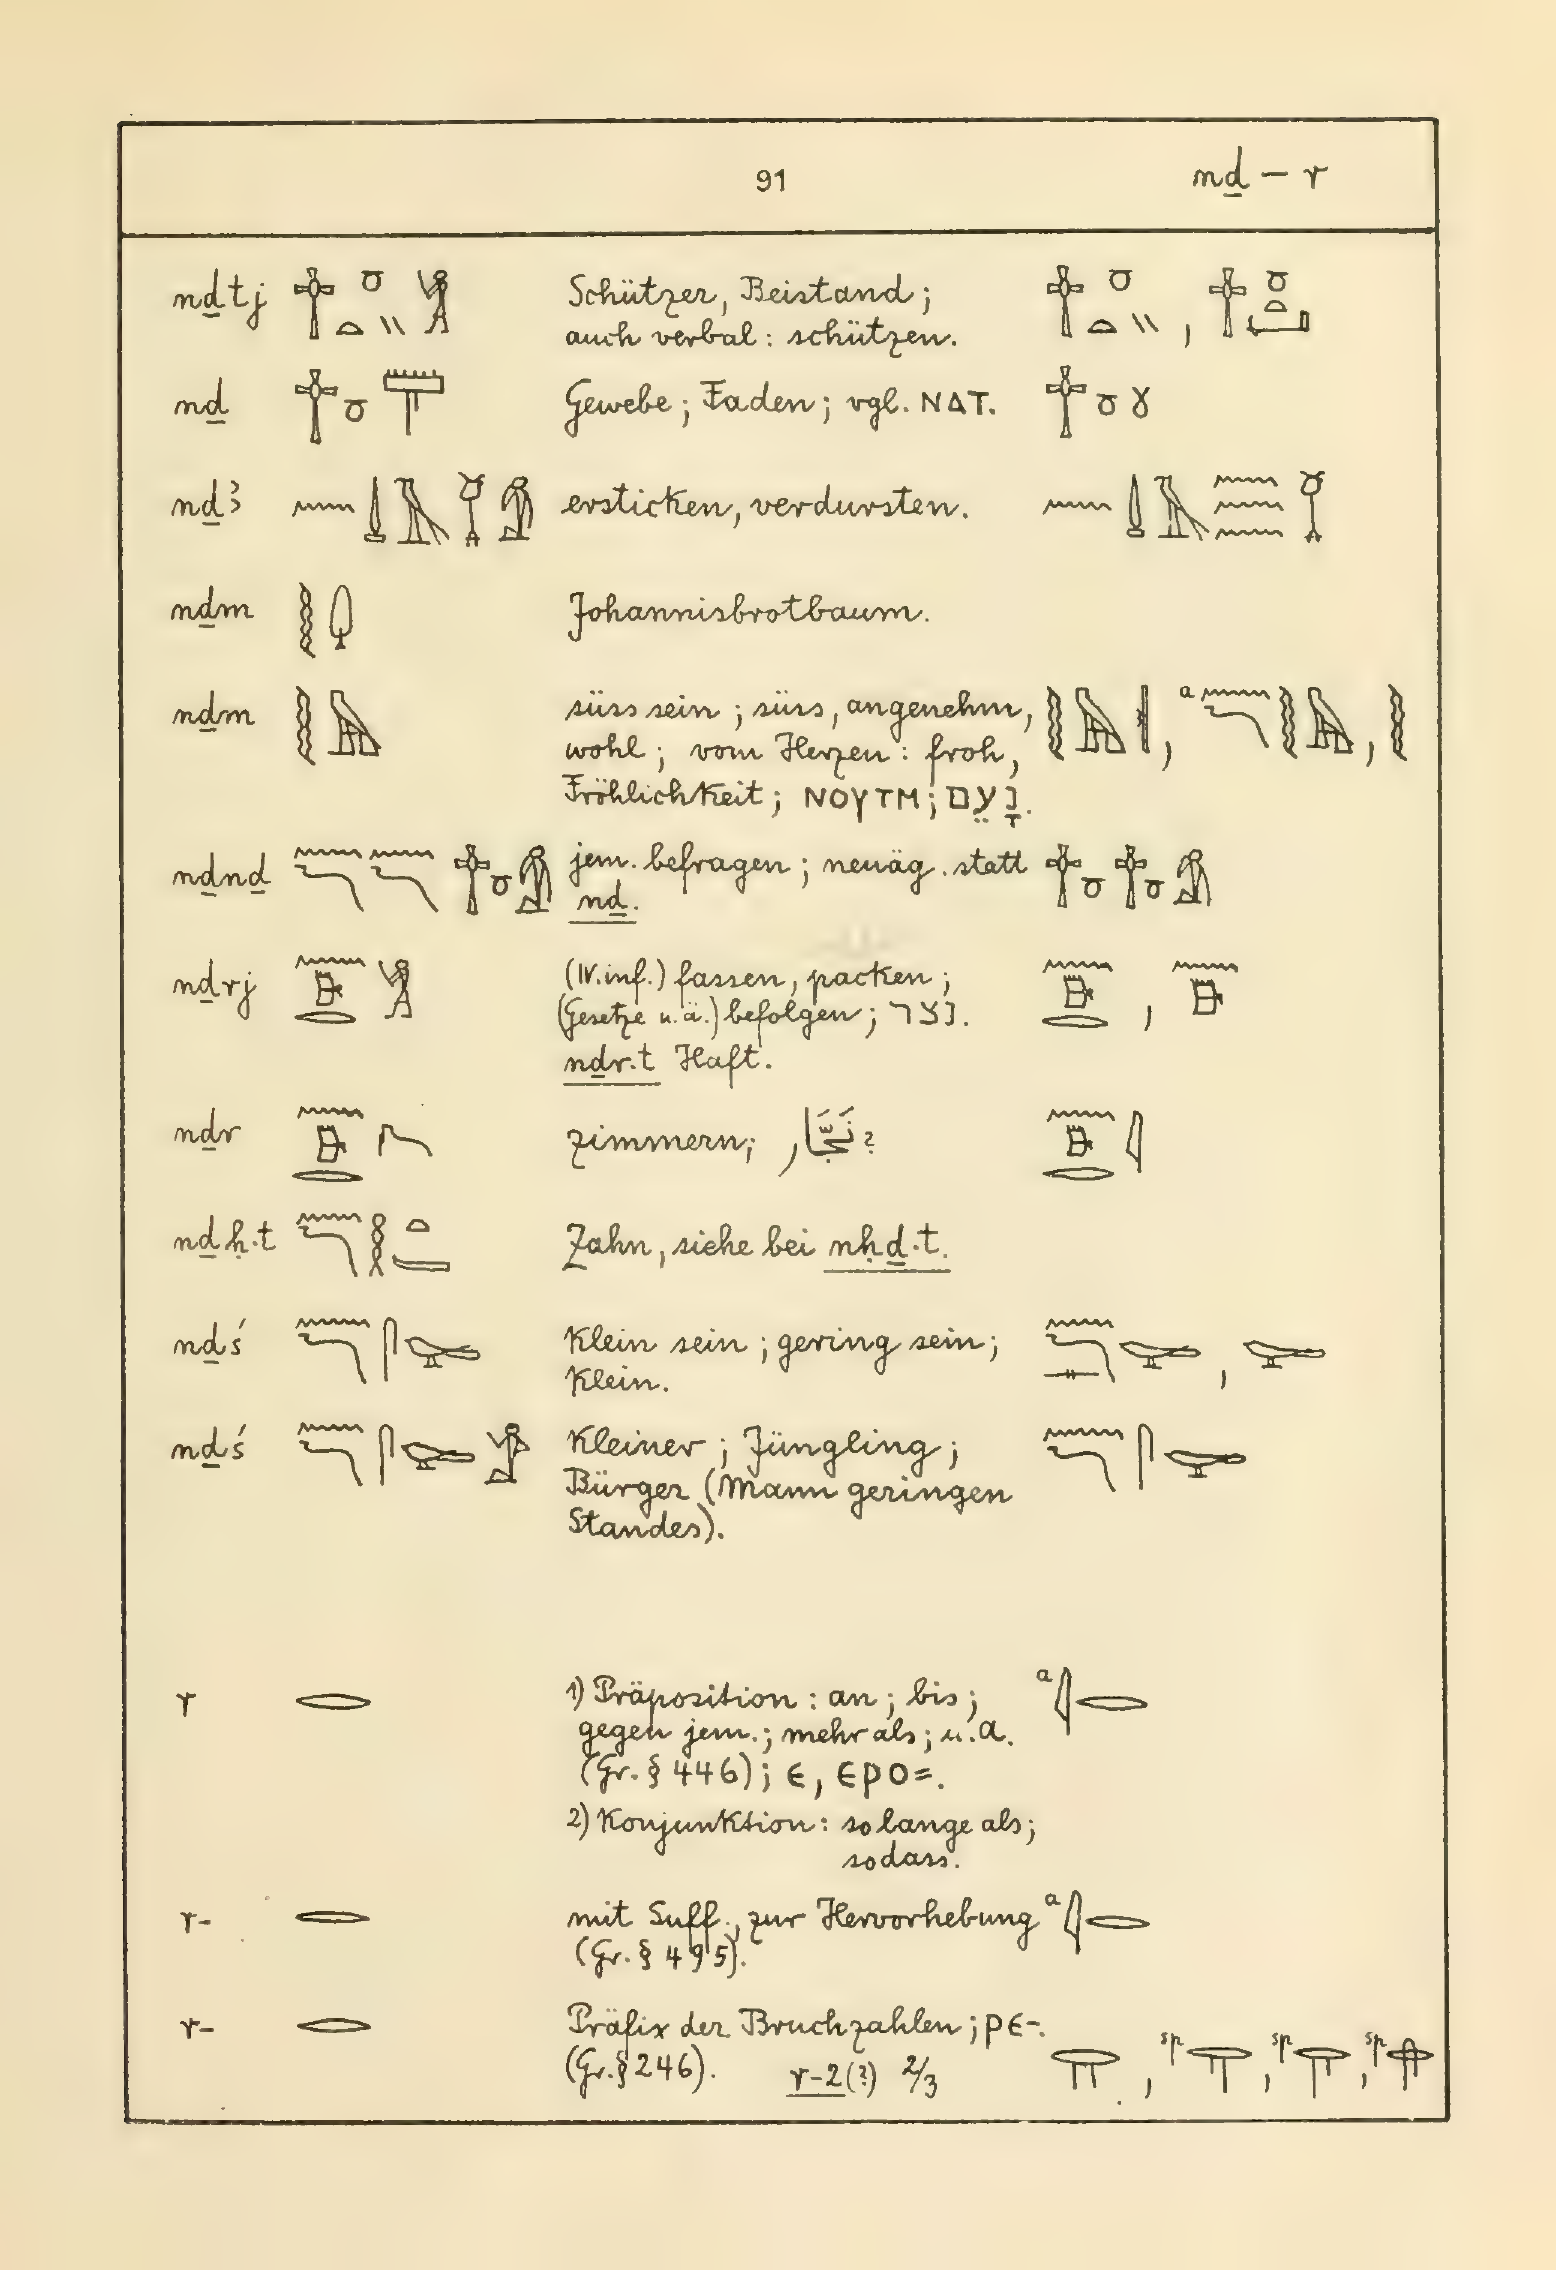 91 nḏ — r
nḏtj Schützer, Beistand;
auch verbal: schützen.
nḏ Gewebe; Faden; vgl. ⲚⲀⲦ.
nḏꜣ ersticken, verdursten.
nḏm Johannisbrotbaum.
nḏm süss sein; süss, angenehm,
wohl; vom Herzen: froh,
Fröhlichkeit; ⲚⲞⲨⲦⲘ; נָעֵם.
nḏnḏ jem. befragen; neuäg. statt
nḏ.
nḏrj (IV.inf.) fassen, packen;
(Gesetze u.ä.) befolgen; נצר.
nḏr.t Haft.
nḏr zimmern;
nḏḥ.t Zahn, siehe bei nḥḏ.t.
nḏś klein sein; gering sein;
klein.
nḏś Kleiner; Jüngling;
Bürger (Mann geringen
Standes).
r 1) Präposition: an; bis; a
gegen jem.; mehr als; u.a.
(Gr. § 446); ⲉ, ⲉⲣⲟ=.
2) Konjunktion: solange als;
sodass.
r- mit Suff., zur Hervorhebung a
(Gr. § 495).
r- Präfix der Bruchzahlen; ⲣⲉ-.
(Gr. § 246). r-2(?) 2/3 , sp , sp , sp